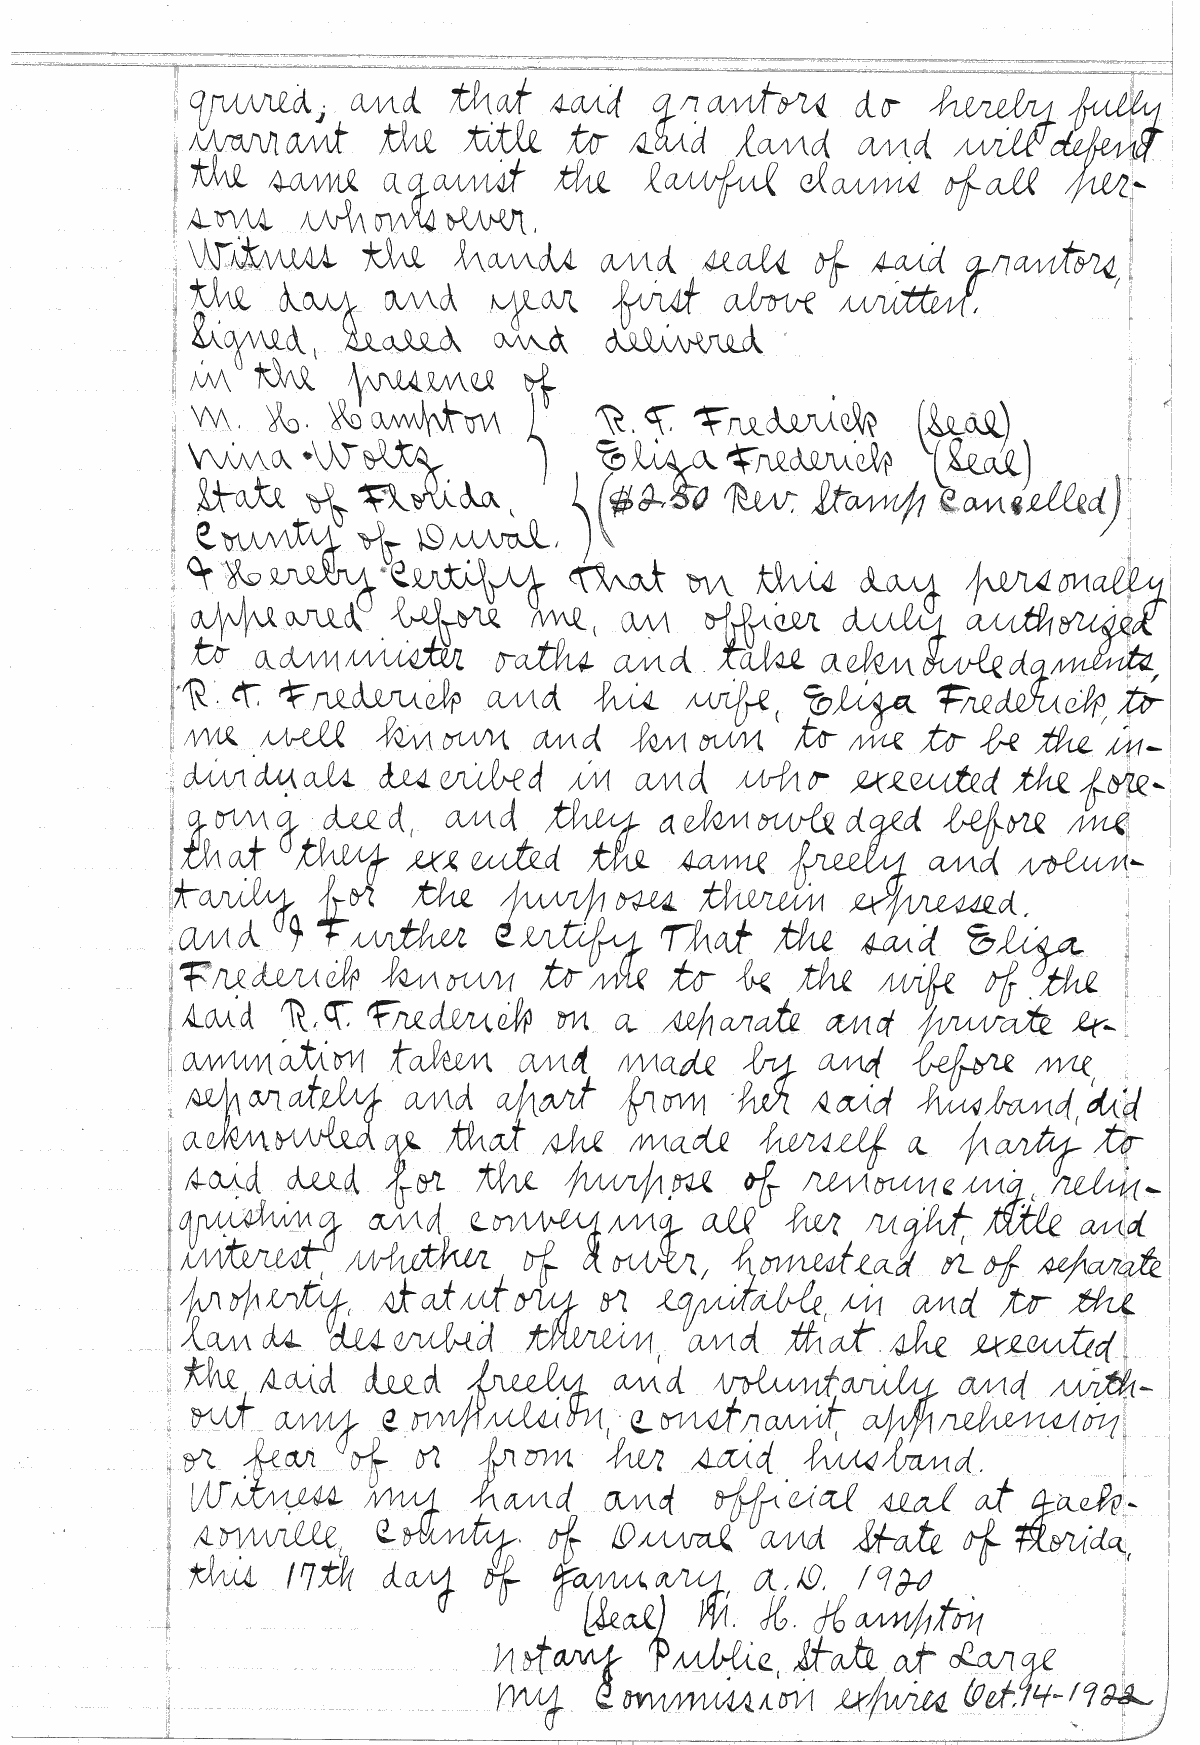 quired; and that said grantors do hereby fully
warrant the title to said land and will defend
the same against the lawful claims of all per-
sons whomsoever.
Witness the hands and seals of said grantors,
the day and year first above written.
Signed, sealed and delivered
in the presence of
M. H. Hampton } R. T. Frederick (Seal)
Nina Woltz } Eliza Frederick (Seal)
State of Florida, } ($2.50 Rev. Stamp Cancelled)
County of Duval. }
I Hereby Certify That on this day personally
appeared before me, an officer duly authorized
to administer oaths and take acknowledgments,
R. T. Frederick and his wife, Eliza Frederick, to
me well known and known to me to be the in-
dividuals described in and who executed the fore-
going deed, and they acknowledged before me
that they executed the same freely and volun-
tarily for the purposes therein expressed.
and I Further Certify That the said Eliza
Frederick known to me to be the wife of the
said R.T. Frederick on a separate and private ex-
amination taken and made by and before me,
separately and apart from her said husband, did
acknowledge that she made herself a party to
said deed for the purpose of renouncing, relin-
quishing and conveying all her right, title and
interest, whether of dower, homestead or of separate
property, statutory or equitable, in and to the
lands described therein, and that she executed
the said deed freely and voluntarily and with-
out any compulsion, constraint, apprehension
or fear of or from her said husband.
Witness my hand and official seal at Jack-
sonville, County of Duval and State of Florida,
this 17th day of January, A.D. 1920
(Seal) M. H. Hampton
Notary Public, State at Large
My Commission expires Oct. 14-1922